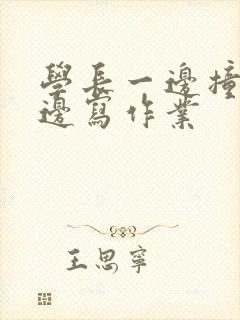 學長一邊撞
邊寫作業
王思寧